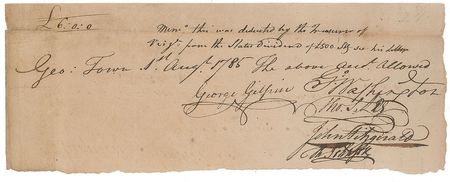 £6:0:0
Mem.o this was deducted by the Treasurer of
Virg.a from the States dividend of £500. Stg see his letter
Geo: Town 1st Augt 1785 The above acct Allowed
George Gilpin Go Washington
Tho.s S. Lee
John Fitzgerald